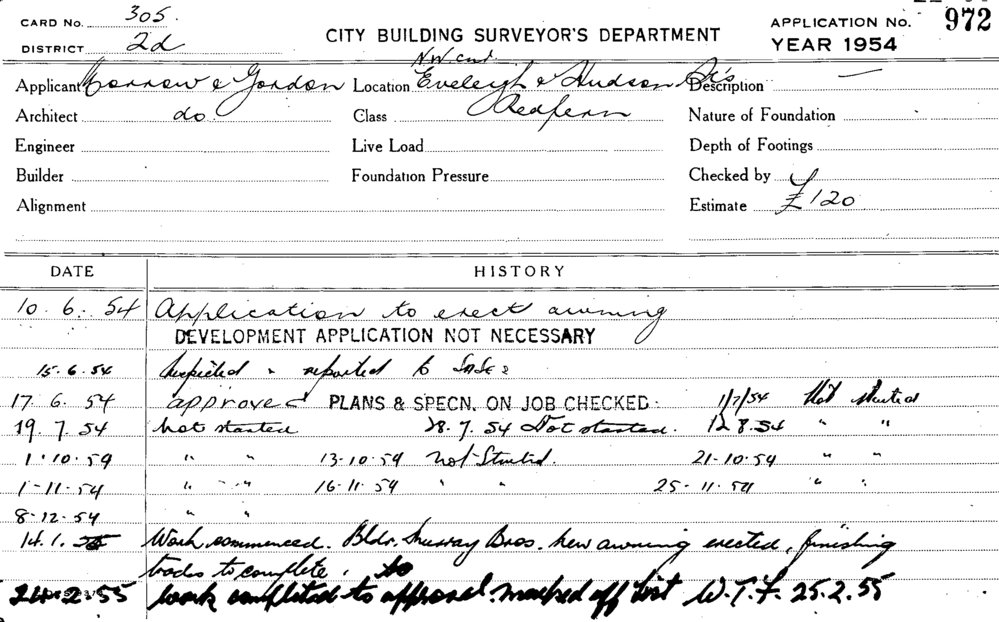 CARD No. 305.
DISTRICT 2d
CITY BUILDING SURVEYOR'S DEPARTMENT
APPLICATION No. 972
YEAR 1954
N.W. cnr.
Applicant Morrow & Gordon Location Eveleigh & Hudson Sts Description —
Architect do. Class Redfern Nature of Foundation
Engineer Live Load Depth of Footings
Builder Foundation Pressure Checked by
Alignment Estimate £120
DATE HISTORY
10. 6. 54 Application to erect awning
DEVELOPMENT APPLICATION NOT NECESSARY
15. 6. 54 Inspected " reported to
17. 6. 54 approved PLANS & SPECN. ON JOB CHECKED 1/7/54 Not started
19. 7. 54 Not started 28. 7. 54 Not started. 12 8. 54 " "
1-10-54 " " 13-10-54 Not Started. 21-10-54 " "
1-11-54 " " 16-11-54 " " 25-11-54 " "
8-12-54 " "
14. 1. 55 Work commenced. Bldr. Murray Bros. New awning erected, finishing
trades to complete.
24-2-55 Work completed to approval. Marked off list W.T.F. 25.2.55